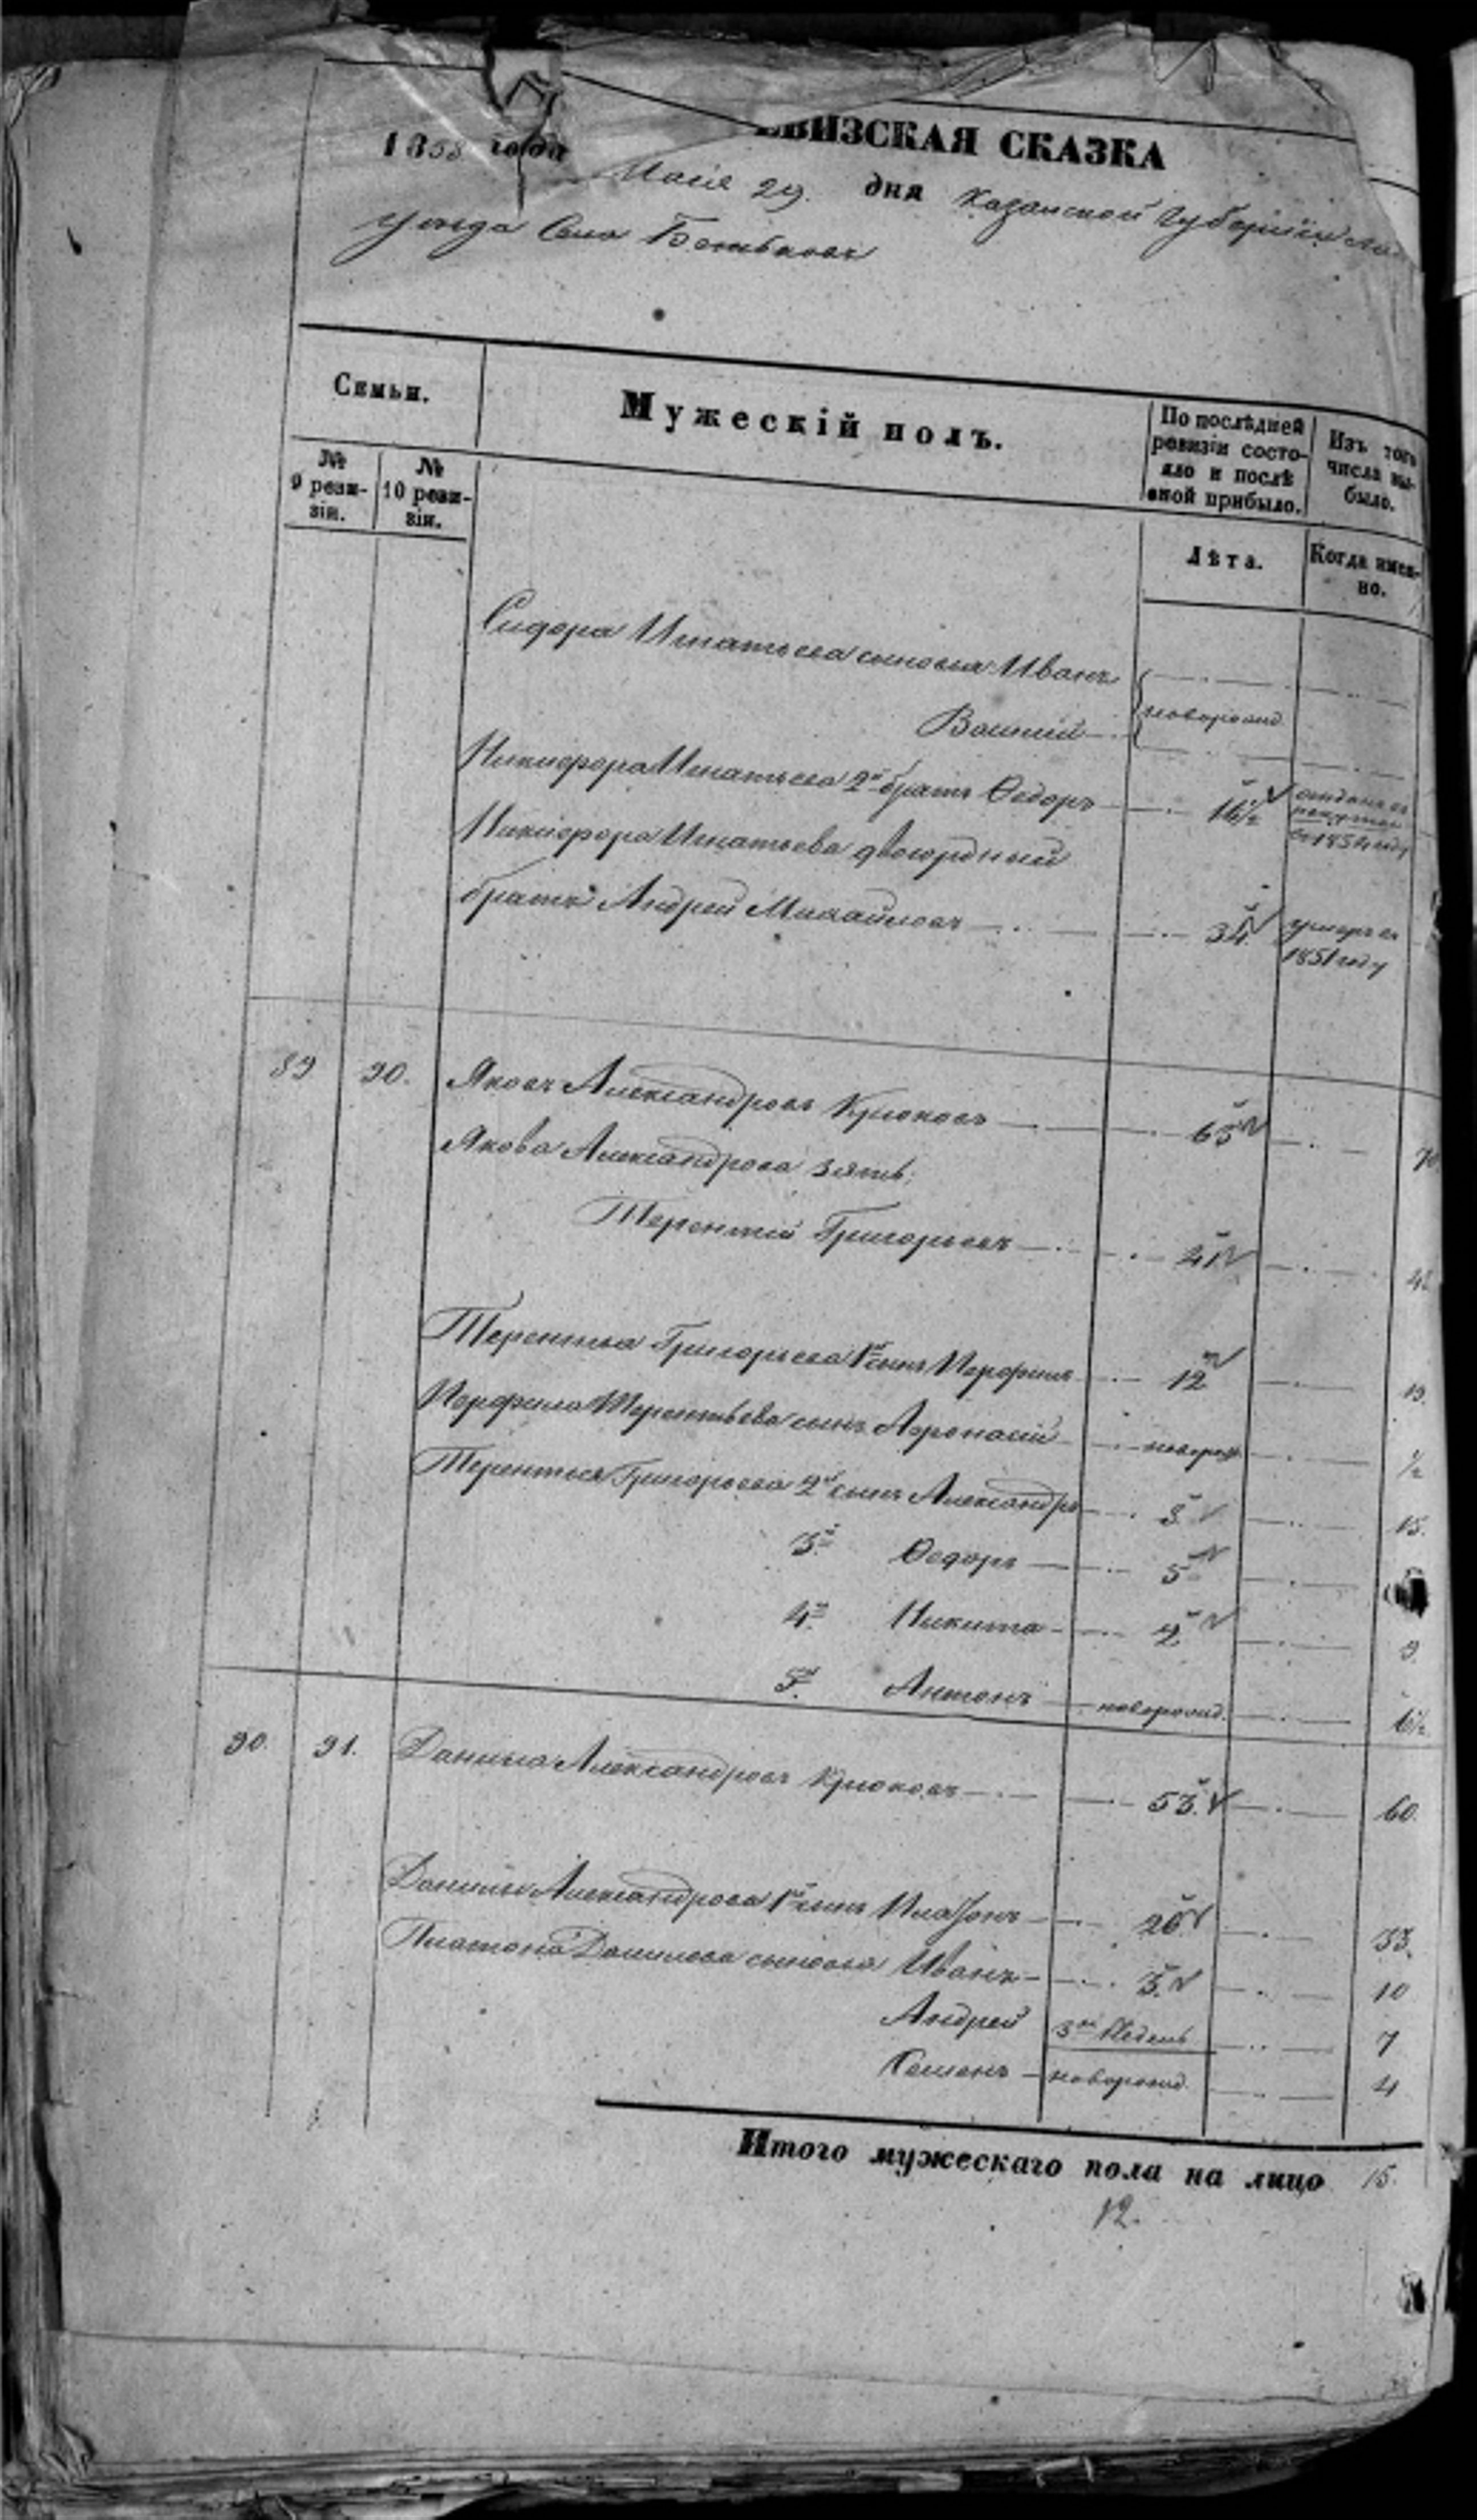 ЕВИЗСКАЯ СКАЗКА
1858 года Маія 29. дня Казанской Губерніи
уезда Села
Семьи.
Мужескій полъ.
По послѣдней ревизіи состояло и послѣ оной прибыло.
Изъ того числа выбыло.
№ 9 ревизіи.
№ 10 ревизіи.
Лѣта.
Когда именно.
Сидора Игнатьева сыновья Иванъ
Василій новорожд.
Никифора Игнатьева 2й братъ Ѳедоръ 16½ отданъ въ рекруты въ 1854 году
Никифора Игнатьева двоюродный
братъ Андрей Михайловъ 34. умеръ въ 1851 году
89 90. Яковъ Александровъ Крюковъ 63
Якова Александрова зять;
Терентій Григорьевъ 41
Терентья Григорьева 1й сынъ Перфилъ 12 19.
Перфила Терентьева сынъ Афонасій новорож. ½
Терентья Григорьева 2й сынъ Александръ 8 15.
3й Ѳедоръ 5
4й Никита 2 9.
5й Антонъ новорожд. 6½.
90. 91. Данила Александровъ Крюковъ 53. 60.
Данилы Александрова 1й сынъ Платонъ 26 33.
Платона Данилова сыновья Иванъ 3. 10
Андрей 3хъ Недель 7
Семенъ новорожд. 4
Итого мужескаго пола на лицо 15.
12.